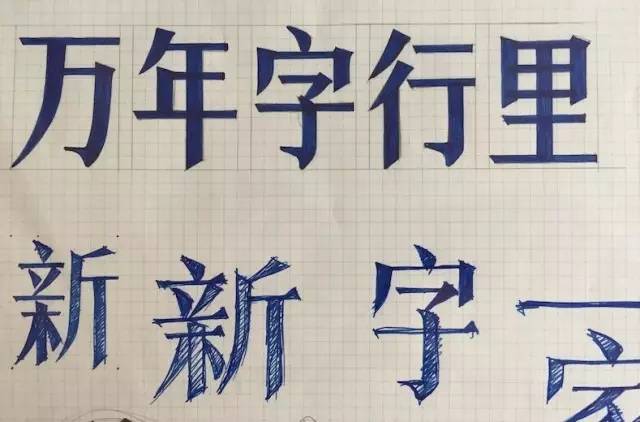 万年字行里
新新字一